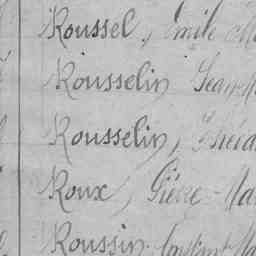 Roussel, Émile
Rousselin, Jean
Rousselin, Théod
Roux, Pierre - Ma
Roussin. Constant Ma